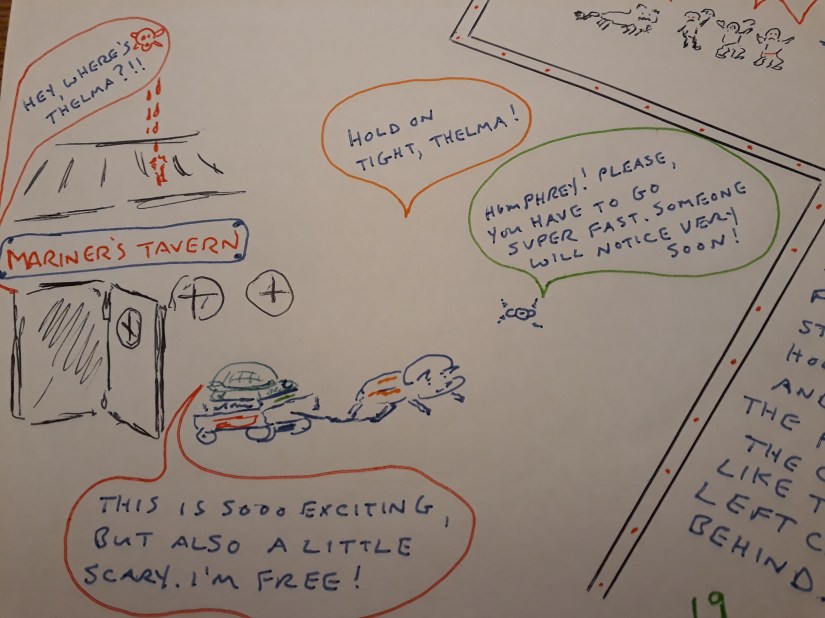 HEY, WHERE'S
THELMA?!!
MARINER'S TAVERN
HOLD ON
TIGHT, THELMA!
HUMPHREY! PLEASE,
YOU HAVE TO GO
SUPER FAST. SOMEONE
WILL NOTICE VERY
SOON!
THIS IS SOOO EXCITING,
BUT ALSO A LITTLE
SCARY. I'M FREE!
AN
THE
THE
LIKE
LEFT
BEHIND.
19